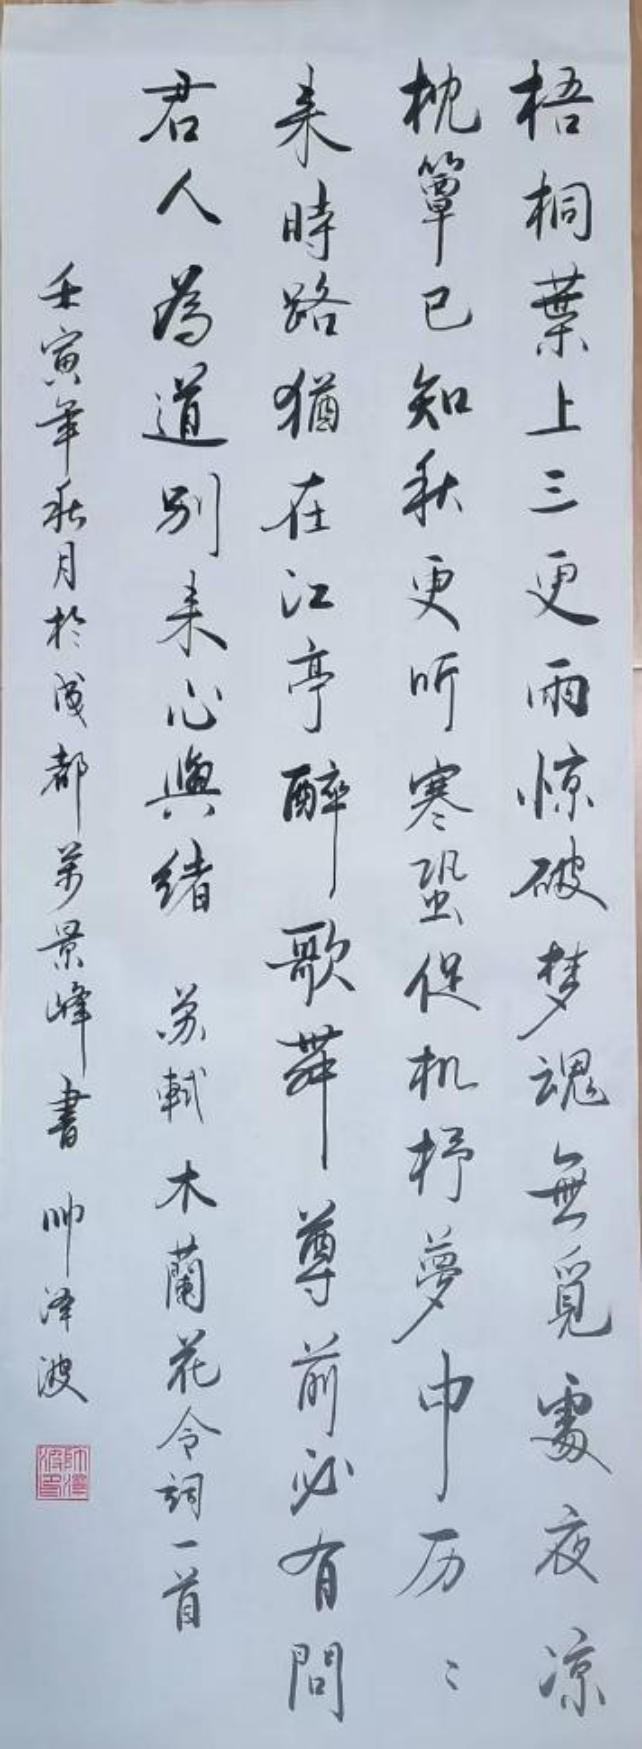 梧桐葉上三更雨惊破梦魂無觅處夜凉
枕簟已知秋更听寒蛩促机杼夢中历〻
来時路猶在江亭醉歌舞尊前必有問
君人為道别来心與绪 苏軾木蘭花令詞一首
壬寅年秋月於成都万景峰書 帅泽波
帅澤波印